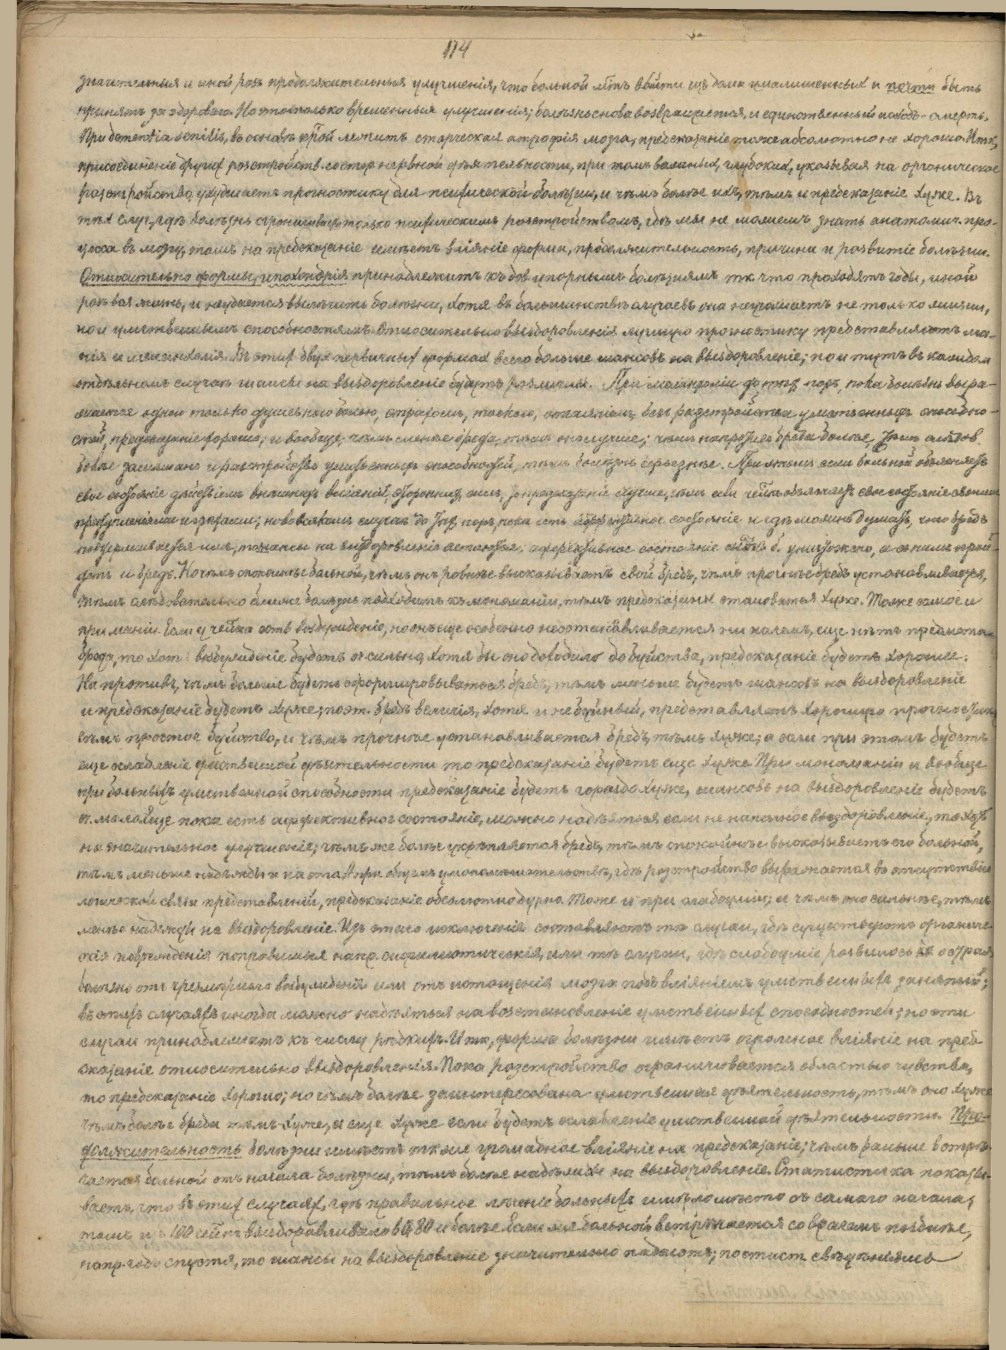 114
значительныя и иной разъ продолжительныя улучшенія, что больной мож. выйти изъ дома умалишенныхъ и быть
принятъ за здороваго. Но это только временныя улучшенія; болѣзнь снова возвращается, и единственный исходъ - смерть.
При dementia senilis, въ основѣ кртой лежитъ старческая атрофія мозга, предсказаніе тоже абсолютно не хорошо. Итакъ,
присоединеніе другихъ разстройствъ со стор. нервной дѣятельности, при томъ важныхъ, глубокихъ, указывая на органическое
разстройство, ухудшаетъ прогностику для психической болѣзни, и чѣмъ болѣе ихъ, тѣмъ и предсказаніе хуже. Въ
тѣхъ случ., гдѣ болѣзнь ограничив. только психическимъ разстройствомъ, гдѣ мы не можемъ знать анатомич. про-
цесса въ мозгу, тамъ на предсказаніе имѣетъ вліяніе форма, продолжительность, причина и развитіе болѣзни.
Относительно формы, ипохондрія принадлежитъ къ довол. упорнымъ болѣзнямъ тк. что проходятъ годы, иной
разъ вся жизнь, и неудается вылѣчить болѣзни, хотя въ большинствѣ случаевъ она неугрожаетъ не только жизни,
но и умственнымъ способностямъ. Относительно выздоровленія лучшую прогностику представляютъ ма-
нія и меланхолія. Въ этихъ двухъ первичныхъ формахъ всего больше шансовъ на выздоровленіе; но и тутъ въ каждомъ
отдѣльномъ случаѣ шансы на выздоровленіе будутъ различны. При меланхоліи до тѣхъ поръ, пока болѣзнь выра-
жается одною только душевною болью, страхомъ, тоскою, отчаяніемъ, безъ разстройства умственныхъ способно-
стей, предсказаніе хорошо; и вообще, чѣмъ меньше бреда, тѣмъ наилучше; чѣмъ напротивъ бреда больше,
болѣе замѣшано и разстройство умственныхъ способностей, тѣмъ болѣзнь серьезнѣе. При этомъ если больной объясняетъ
свое состояніе дѣйствіемъ внѣшнихъ вліяній, сторонних лицъ, то предсказаніе лучше, чѣмъ если объясняетъ свое состояніе своими
преступленіями и грѣхами; но во всякомъ случаѣ до тѣхъ поръ, пока есть аффективное состояніе и гдѣ можно думать, что бредъ
поддерживается имъ, то шансы на выздоровленіе остаются; аффективное состояніе б. уничтожено, а съ нимъ прой-
детъ и бредъ. Но чѣмъ спокойнѣе больной, чѣмъ онъ ровнѣе высказываетъ свой бредъ, чѣмъ прочнѣе бредъ устанавливается,
тѣмъ слѣдовательно ближе болѣзнь подходитъ къ мономаніи, тѣмъ предсказаніе становится хуже. Тоже самое и
при маніи. Если у есть возбужденіе, но онъ еще особенно неостанавливается ни на чемъ, еще нѣтъ предмета
бреда, то хотя возбужденіе будетъ и сильно, хотя бы оно доводило до буйства, предсказаніе будетъ хорошее.
На противъ, чѣмъ больше будетъ сформировываться бредъ, тѣмъ меньше будетъ шансовъ на выздоровленіе
и предсказаніе будетъ хуже; поэт. бредъ величія, хотя и не буйный, представляетъ худшую
чѣмъ простое буйство, и чѣмъ прочнѣе устанавливается бредъ, тѣмъ хуже; а если при этомъ будетъ
еще ослабленіе умственной дѣятельности то предсказаніе будетъ еще хуже. При мономаніи и вообще
при больныхъ умственной способности предсказаніе будетъ гораздо хуже, шансовъ на выздоровленіе будетъ
оч. мало. Еще пока есть аффективное состояніе, можно надѣяться если не на полное выздоровленіе, то хоть
на значительное улучшеніе; чѣмъ же болѣе укрѣпляется бредъ, тѣмъ спокойнѣе высказываетъ его больной,
тѣмъ меньше надежды и на это. А при общемъ умопомѣшательствѣ, гдѣ разстройство выражается въ отсутствіи
логической связи представленій, предсказаніе абсолютно дурно. Тоже и при слабоуміи; и чѣмъ оно сильнѣе, тѣмъ
менѣе надежды на выздоровленіе. Изъ этого исключеніе составляютъ тѣ случаи, гдѣ существуютъ органиче-
скія поврежденія поправимыя напр. сифилитическія, или тѣ случаи, гдѣ слабоуміе развилось остраго
болѣзн. отъ чрезмѣрнаго возбужденія или отъ истощенія мозга подъ вліяніемъ умственныхъ занятій;
въ этихъ случаяхъ иногда можно надѣяться на возстановленіе умственныхъ способностей; но эти
случаи принадлежатъ къ числу рѣдкихъ. Итак, форма болѣзни имѣетъ огромное вліяніе на пред-
сказаніе относительно выздоровленія. Пока разстройство ограничивается областью чувства,
то предсказаніе хорошо; но чѣмъ болѣе заинтересована умственная дѣятельность, тѣмъ оно хуже,
чѣмъ болѣе бреда тѣмъ хуже, и еще хуже если будетъ ослабленіе умственной дѣятельности. Про-
должительность болѣзни имѣетъ также громадное вліяніе на предсказаніе; чѣмъ раньше встрѣ-
чается больной отъ начала болѣзни, тѣмъ болѣе надежды на выздоровленіе. Статистика показы-
ваетъ, что въ этихъ случаяхъ, гдѣ правильное лѣченіе больныхъ имѣло мѣсто съ самаго начала,
тамъ изъ 100 выздоравливало 80 и болѣе. Если же больной встрѣчается со врачемъ позднѣе,
напр. годъ спустя, то шансы на выздоровленіе значительно падаютъ; по статист. свѣдѣніямъ